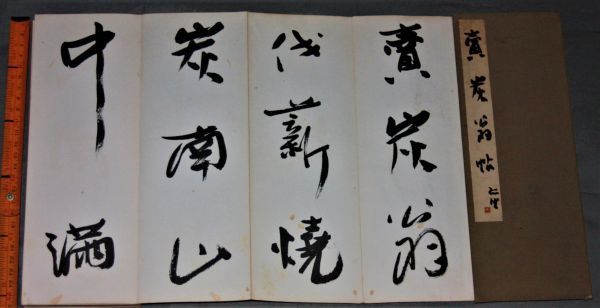 賣炭翁帖
賣炭翁
伐薪燒
炭南山
中滿